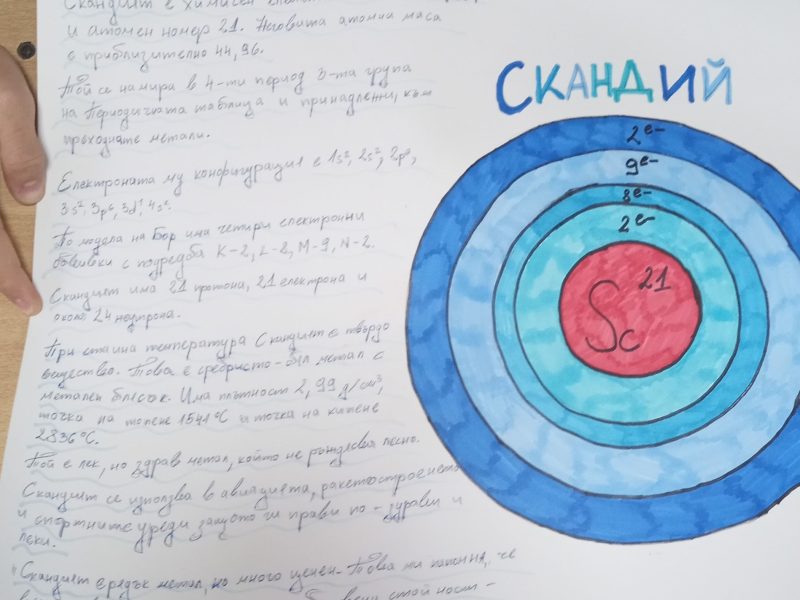 Скандият е химичен
и атомен номер 21. Неговата атомна маса
е приблизително 44,96.
Той се намира в 4-ти период 3-та група
на Периодичната таблица и принадлежи, към
преходните метали.
Електроната му конфигурация е 1s², 2s², 2p⁶,
3s², 3p⁶, 3d¹, 4s².
По модела на Бор има четири електронни
обвивки с подредба K-2, L-8, M-9, N-2.
Скандият има 21 протона, 21 електрона и
около 24 неутрона.
При стайна температура Скандият е твърдо
вещество. Това е сребристо-бял метал с
метален блясък. Има плътност 2,99 g/cm³,
точка на топене 1541°C и точка на кипене
2836°C.
Той е лек, но здрав метал, който не ръждясва лесно.
Скандият се използва в авиацията, ракетостроенето
и спортните уреди защото ги прави по-здрави и
леки.
Скандият е рядък метал, но много ценен. Това ми че
стойност-
СКАНДИЙ
2e-
9e-
8e-
2e-
21
Sc